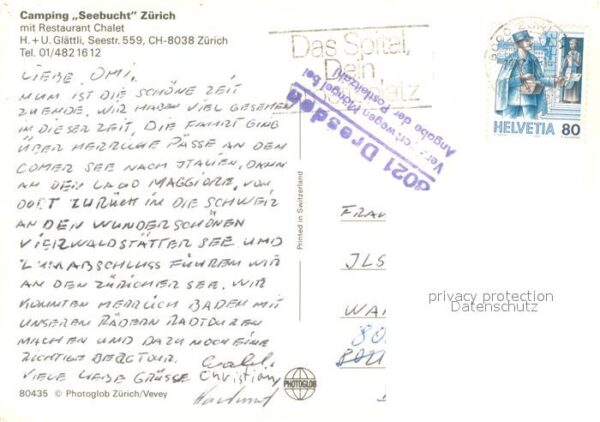 Camping „Seebucht“ Zürich
mit Restaurant Chalet
H. + U. Glättli, Seestr. 559, CH-8038 Zürich
Tel. 01/482 16 12
LIEBE OMI,
NUN IST DIE SCHÖNE ZEIT
ZUENDE. WIR HABEN VIEL GESEHEN
IN DIESER ZEIT. DIE FAHRT GING
ÜBER HERRLICHE PÄSSE AN DEN
COMER SEE NACH ITALIEN, DANN
AN DEN LAGO MAGGIORE, VON
DORT ZURÜCK IN DIE SCHWEIZ
AN DEN WUNDERSCHÖNEN
VIERWALDSTÄTTER SEE UND
ZUM ABSCHLUSS FUHREN WIR
AN DEN ZÜRICHER SEE. WIR
KONNTEN HERRLICH BADEN MIT
UNSEREN RÄDERN RADTOUREN
MACHEN UND DAZU NOCH EINE
RICHTIGE BERGTOUR.
VIELE LIEBE GRÜSSE Christian
80435 © Photoglob Zürich/Vevey
PHOTOGLOB
Printed in Switzerland
Das Spital,
Dein
8021 Dresden
wegen Mangel bei
Angabe der Postleitzahl
HELVETIA 80
FRAU
JLS
WA
80
privacy protection
Datenschutz